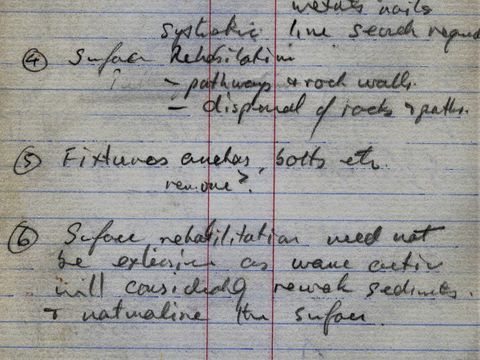 metals nails
systematic line search
④ Surface Rehabilitation
- pathways & rock walls.
- disposal of rocks & paths.
⑤ Fixtures anchors, bolts etc.
remove?.
⑥ Surface rehabilitation need not
be extensive as wave action
will considerably rework sediments.
& naturalise the surface.